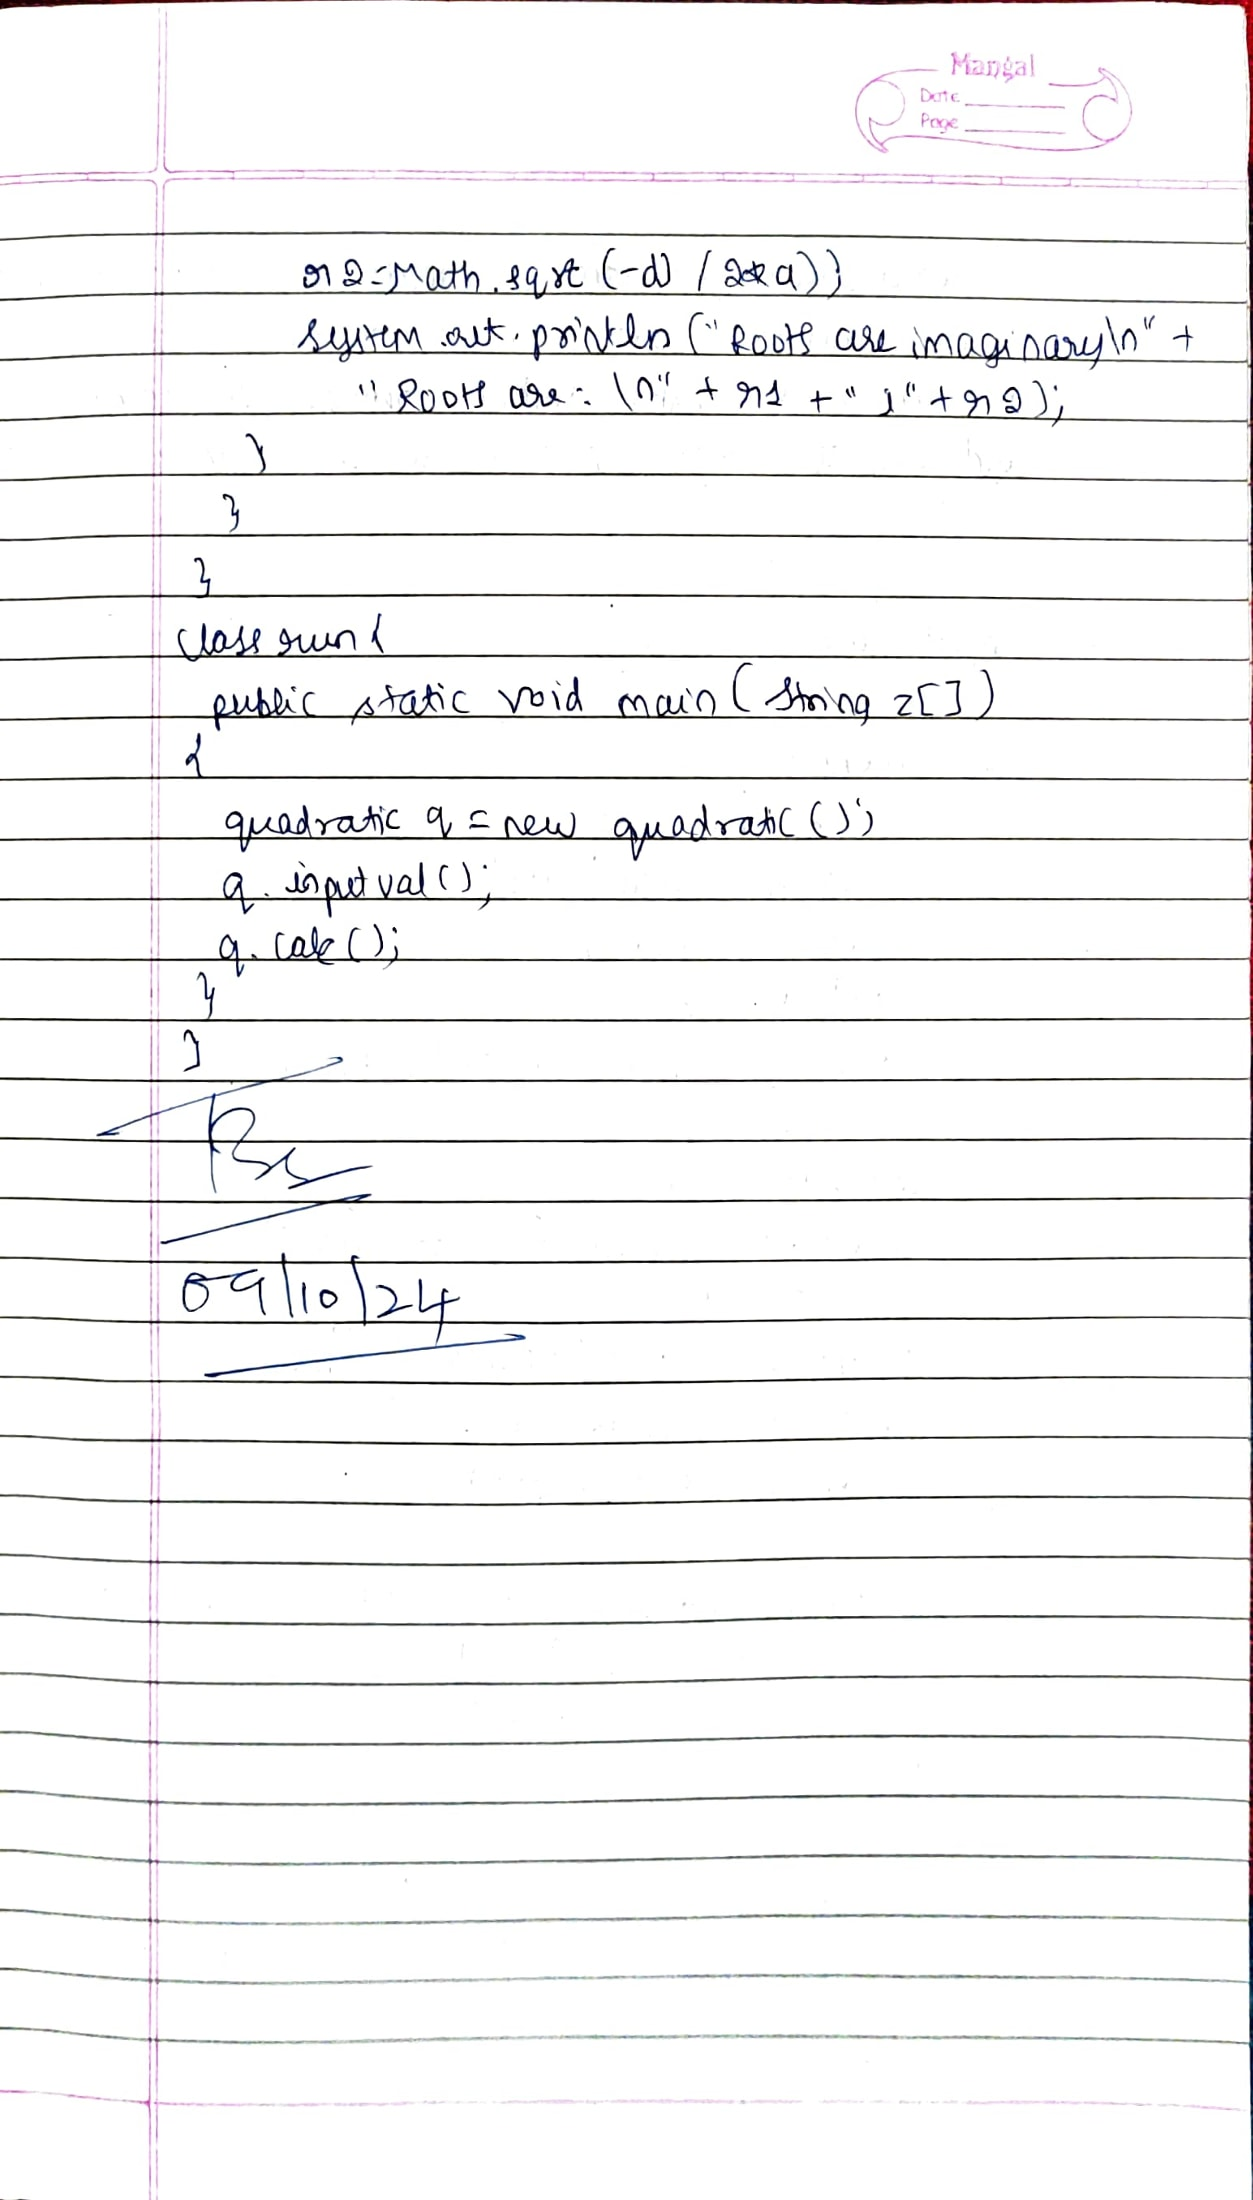 Mangal
Date
Page
r2=Math.sqrt(-d) / 2*a))
System.out.println("Roots are imaginary\n" +
"Roots are: \n" + r1 + "i" + r2);
}
}
}
class run{
public static void main(String z[])
{
quadratic q = new quadratic();
q.inputval();
q.calc();
}
}
09/10/24